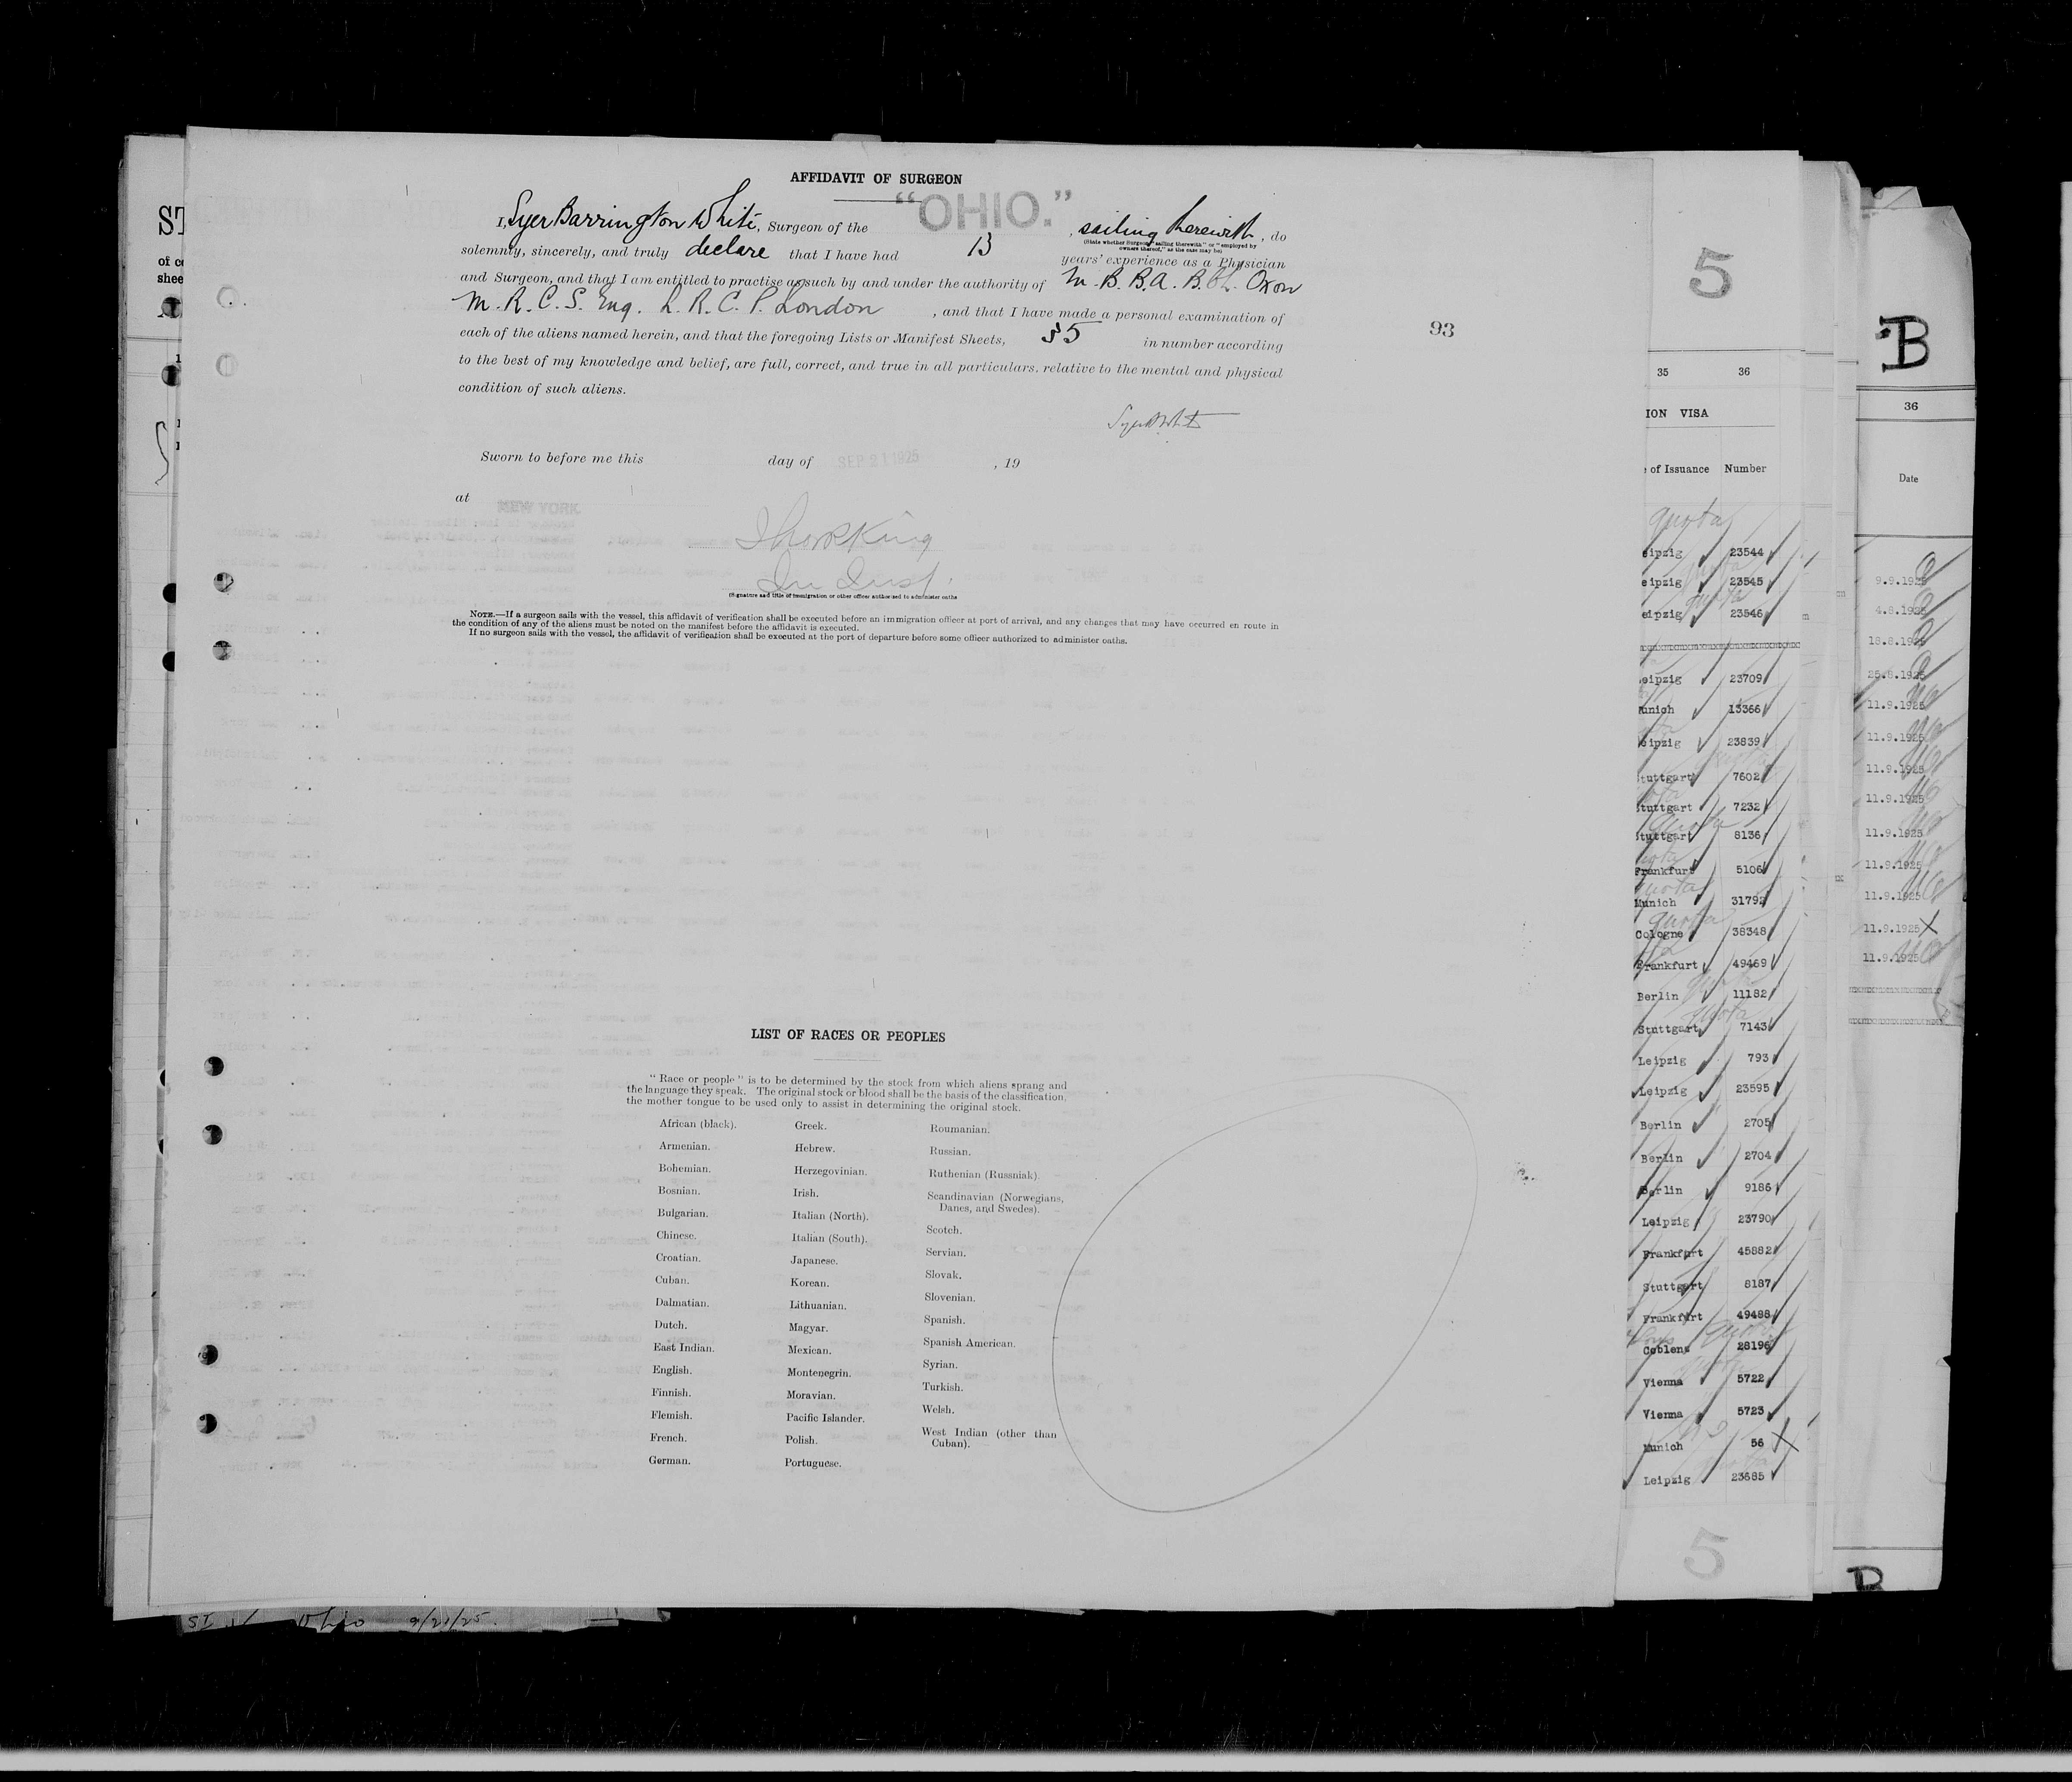 AFFIDAVIT OF SURGEON
"OHIO."
I, Syer Barrington White, Surgeon of the , sailing therewith, do
(State whether Surgeon "sailing therewith" or "employed by
owners thereof," as the case may be)
solemnly, sincerely, and truly declare that I have had 13 years' experience as a Physician
and Surgeon, and that I am entitled to practise as such by and under the authority of M.B. B.A. B.Ch. Oxon
M.R.C.S. Eng. L.R.C.P. London , and that I have made a personal examination of
each of the aliens named herein, and that the foregoing Lists or Manifest Sheets, 35 in number according
to the best of my knowledge and belief, are full, correct, and true in all particulars, relative to the mental and physical
condition of such aliens.
93
Sworn to before me this day of SEP 21 1925 , 19
at NEW YORK
(Signature and title of immigration or other officer authorized to administer oaths
NOTE.—If a surgeon sails with the vessel, this affidavit of verification shall be executed before an immigration officer at port of arrival, and any changes that may have occurred en route in
the condition of any of the aliens must be noted on the manifest before the affidavit is executed.
If no surgeon sails with the vessel, the affidavit of verification shall be executed at the port of departure before some officer authorized to administer oaths.
LIST OF RACES OR PEOPLES
"Race or people" is to be determined by the stock from which aliens sprang and
the language they speak. The original stock or blood shall be the basis of the classification,
the mother tongue to be used only to assist in determining the original stock.
African (black).
Armenian.
Bohemian.
Bosnian.
Bulgarian.
Chinese.
Croatian.
Cuban.
Dalmatian.
Dutch.
East Indian.
English.
Finnish.
Flemish.
French.
German.
Greek.
Hebrew.
Herzegovinian.
Irish.
Italian (North).
Italian (South).
Japanese.
Korean.
Lithuanian.
Magyar.
Mexican.
Montenegrin.
Moravian.
Pacific Islander.
Polish.
Portuguese.
Roumanian.
Russian.
Ruthenian (Russniak).
Scandinavian (Norwegians,
Danes, and Swedes).
Scotch.
Servian.
Slovak.
Slovenian.
Spanish.
Spanish American.
Syrian.
Turkish.
Welsh.
West Indian (other than
Cuban).
5
35 36
ION VISA
of Issuance Number
quota
eipzig 23544
eipzig 23545
eipzig 23546
eipzig 23709
unich 13366
eipzig 23839
tuttgart 7602
tuttgart 7232
tuttgart 8136
Frankfurt 5106
Munich 31792
Cologne 38348
Frankfurt 49469
Berlin 11182
Stuttgart 7143
Leipzig 793
Leipzig 23595
Berlin 2705
Berlin 2704
Berlin 9186
Leipzig 23790
Frankfurt 45882
Stuttgart 8187
Frankfurt 49488
Coblenz 28196
Vienna 5722
Vienna 5723
Munich 56
Leipzig 23685
5
B
36
Date
9.9.1925
4.8.1925
18.8.1925
25.8.1925
11.9.1925
11.9.1925
11.9.1925
11.9.1925
11.9.1925
11.9.1925
11.9.1925
11.9.1925
11.9.1925
B
ST
of c
shee
Ohio 9/21/25.